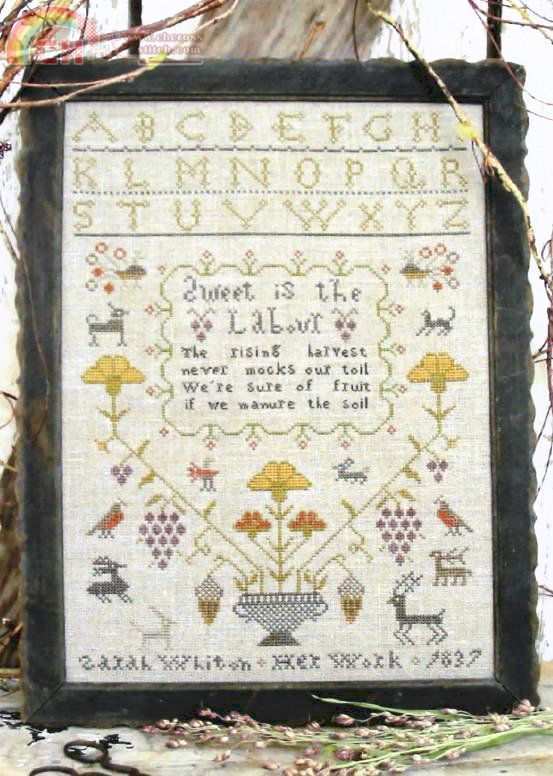 A B C D E F G H
K L M N O P Q R
S T U V W X Y Z
Sweet is the
Labour
The rising harvest
never mocks our toil
We're sure of fruit
if we manure the soil
Sarah Whiton + Her Work + 1837